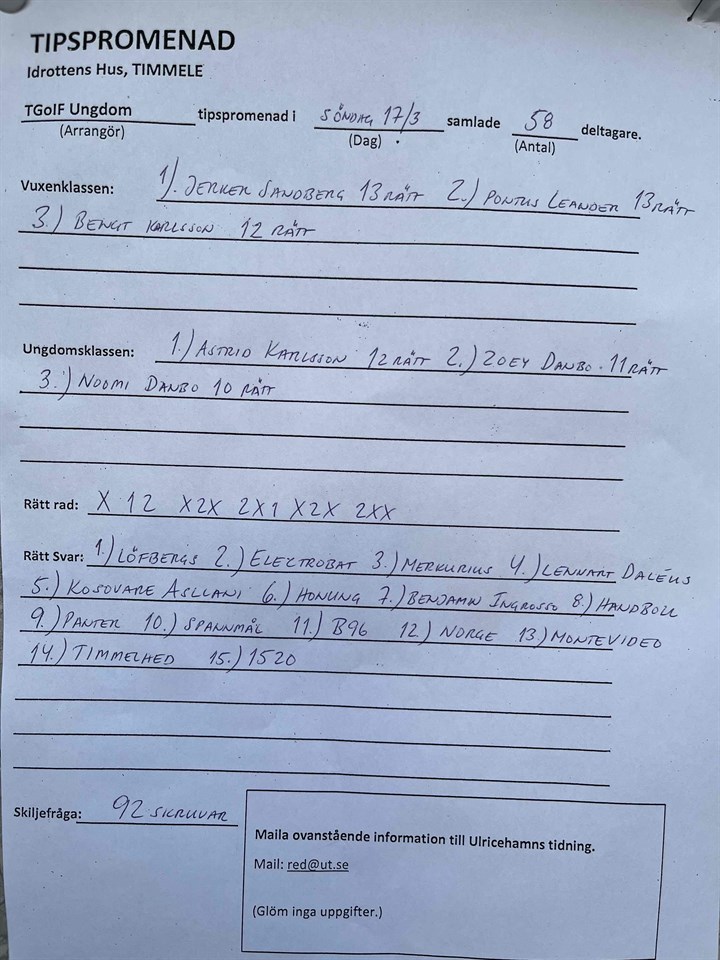 TIPSPROMENAD
Idrottens Hus, TIMMELE
TGoIF Ungdom tipspromenad i SÖNDAG 17/3 samlade 58 deltagare.
(Arrangör) (Dag) (Antal)
Vuxenklassen: 1). JERKER SANDBERG 13 RÄTT 2.) PONTUS LEANDER 13 RÄTT
3.) BENGT KARLSSON 12 RÄTT
Ungdomsklassen: 1.) ASTRID KARLSSON 12 RÄTT 2.) ZOEY DANBO 11 RÄTT
3.) NOOMI DANBO 10 RÄTT
Rätt rad: X 12 X2X 2X1 X2X 2XX
Rätt Svar: 1.) LÖFBERGS 2.) ELECTROBAT 3.) MERKURIUS 4.) LENNART DALÉUS
5.) KOSOVARE ASLLANI 6.) HONUNG 7.) BENJAMIN INGROSSO 8.) HANDBOLL
9.) PANTER 10.) SPANNMÅL 11.) B96 12.) NORGE 13.) MONTEVIDEO
14.) TIMMELHED 15.) 1520
Skiljefråga: 92 SKRUVAR
Maila ovanstående information till Ulricehamns tidning.
Mail: red@ut.se
(Glöm inga uppgifter.)